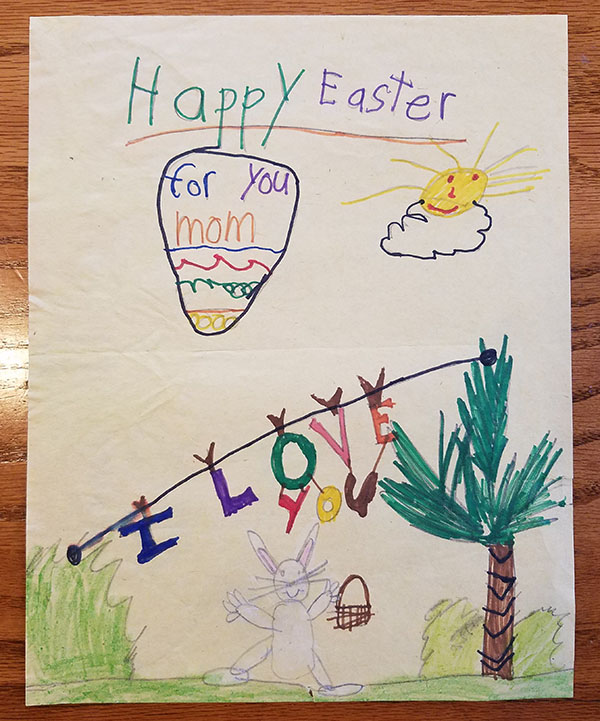 Happy Easter
for you
mom
I LOVE
YOU